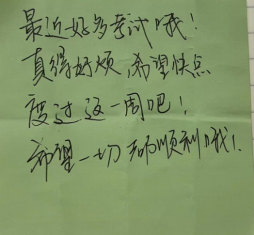 最近好多考试哦！
真得好烦,希望快点
度过这一周吧！
希望一切都顺利哦！